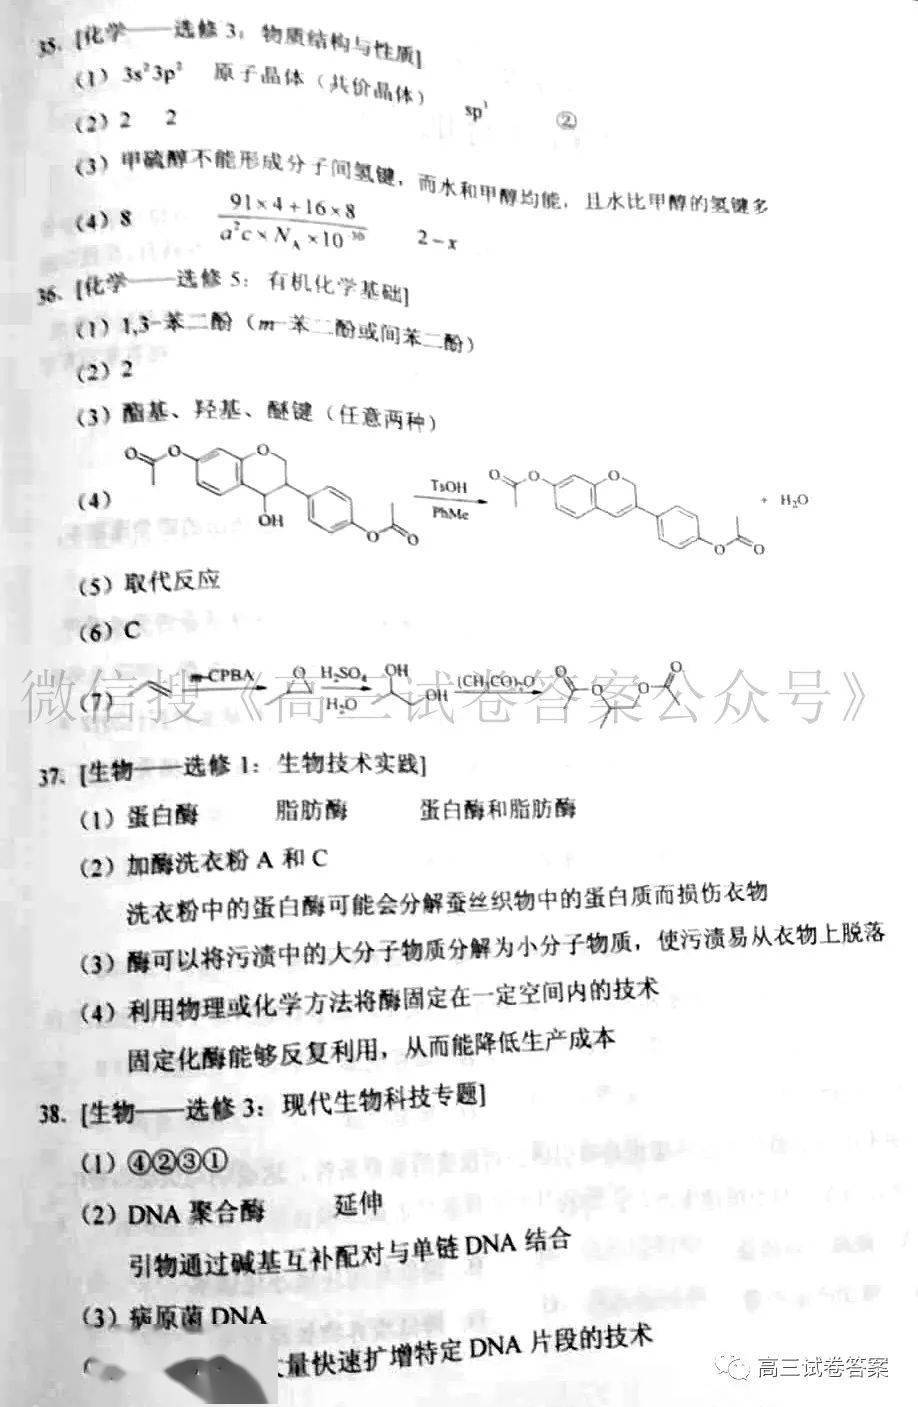 35. [化学——选修 3：物质结构与性质]
(1) 3s²3p² 原子晶体（共价晶体） sp³ ②
(2) 2 2
(3) 甲硫醇不能形成分子间氢键，而水和甲醇均能，且水比甲醇的氢键多
(4) 8 (91×4+16×8)/(a²c×N_A×10⁻³⁰) 2-x
36. [化学——选修 5：有机化学基础]
(1) 1,3-苯二酚（m-苯二酚或间苯二酚）
(2) 2
(3) 酯基、羟基、醚键（任意两种）
(4) O O O OH O O TsOH PhMe O O O O O + H₂O
(5) 取代反应
(6) C
(7) m-CPBA O H₂SO₄ H₂O OH OH (CH₃CO)₂O O O O O
微信搜《高三试卷答案公众号》
37. [生物——选修 1：生物技术实践]
(1) 蛋白酶 脂肪酶 蛋白酶和脂肪酶
(2) 加酶洗衣粉 A 和 C
洗衣粉中的蛋白酶可能会分解蚕丝织物中的蛋白质而损伤衣物
(3) 酶可以将污渍中的大分子物质分解为小分子物质，使污渍易从衣物上脱落
(4) 利用物理或化学方法将酶固定在一定空间内的技术
固定化酶能够反复利用，从而能降低生产成本
38. [生物——选修 3：现代生物科技专题]
(1) ④②③①
(2) DNA 聚合酶 延伸
引物通过碱基互补配对与单链 DNA 结合
(3) 病原菌 DNA
量快速扩增特定 DNA 片段的技术
高三试卷答案